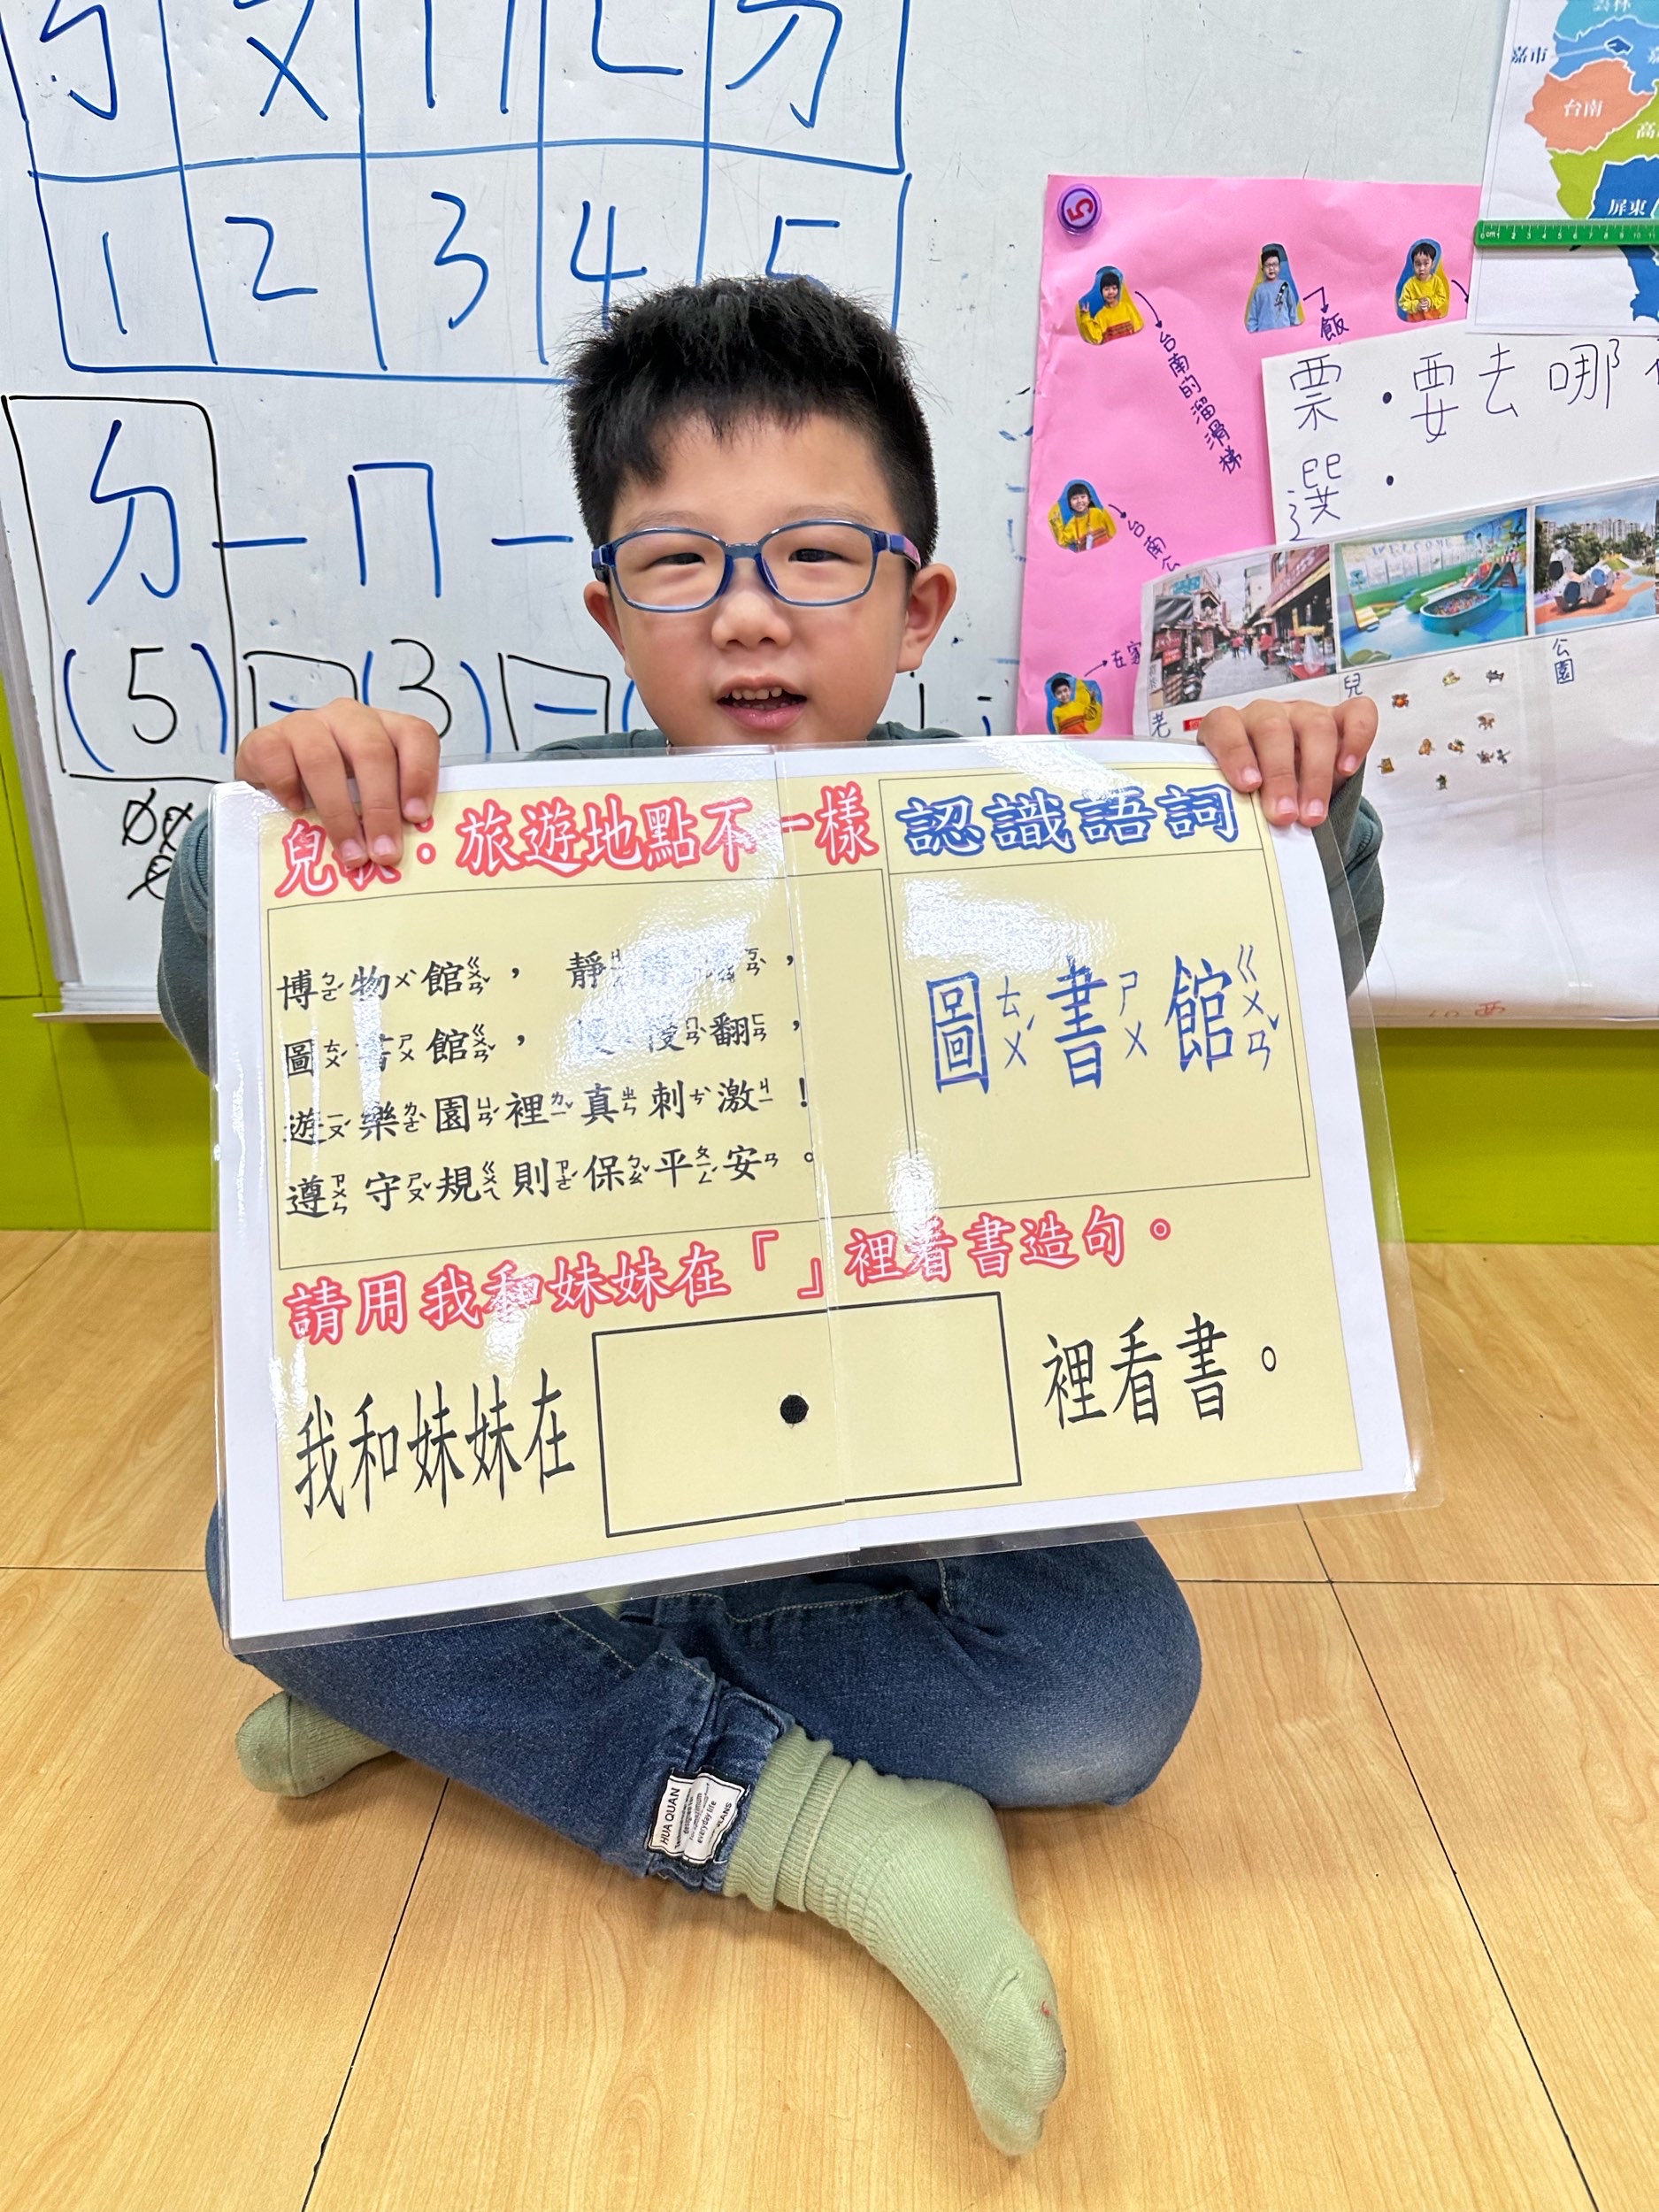 ㄅ ㄆ ㄇ ㄈ ㄉ
1 2 3 4 5
ㄉ－ㄇ－
(5)－(3)－(
5
台南的溜滑梯
飯
台南公
在家
票・要去哪
選・
公園
兒
老
嘉市
台南
屏東
兒歌：旅遊地點不一樣
認識語詞
博ㄅㄛˊ物ㄨˋ館ㄍㄨㄢˇ， 靜
圖ㄊㄨˊ書ㄕㄨ館ㄍㄨㄢˇ， 翻ㄈㄢ，
遊ㄧㄡˊ樂ㄌㄜˋ園ㄩㄢˊ裡ㄌㄧˇ真ㄓㄣ刺ㄘˋ激ㄐㄧ！
遵ㄗㄨㄣ守ㄕㄡˇ規ㄍㄨㄟ則ㄗㄜˊ保ㄅㄠˇ平ㄆㄧㄥˊ安ㄢ。
圖ㄊㄨˊ書ㄕㄨ館ㄍㄨㄢˇ
請用我和妹妹在「 」裡看書造句。
我和妹妹在 裡看書。
HUA QUAN
everyday life